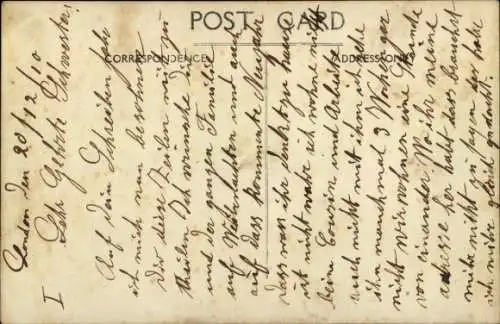 POST CARD
CORRESPONDENCE
ADDRESS ONLY
I
London den 20/12/10
Sehr Geherte Schwester!
Auf dein Schreiben habe
ich mich nun besonnen
Dir diese Zeilen mit zu
theilen. Ich wünsche dir
und der ganzen Familie
auf Weihnachten und auch
auf dass kommente Neujahr
dass was ihr denkt zu haus
ist nicht war ich wohne nicht
beim Cousin und Arbeite
auch nicht mit ihm ich sehe
ihn manchmal 3 Wochen gar
nicht wir wohnen eine Stunde
von einander. Wo ihr meine
adresse her habt dass brauchst
mir nicht zu sagen der habe
ich mir gleich gedacht.